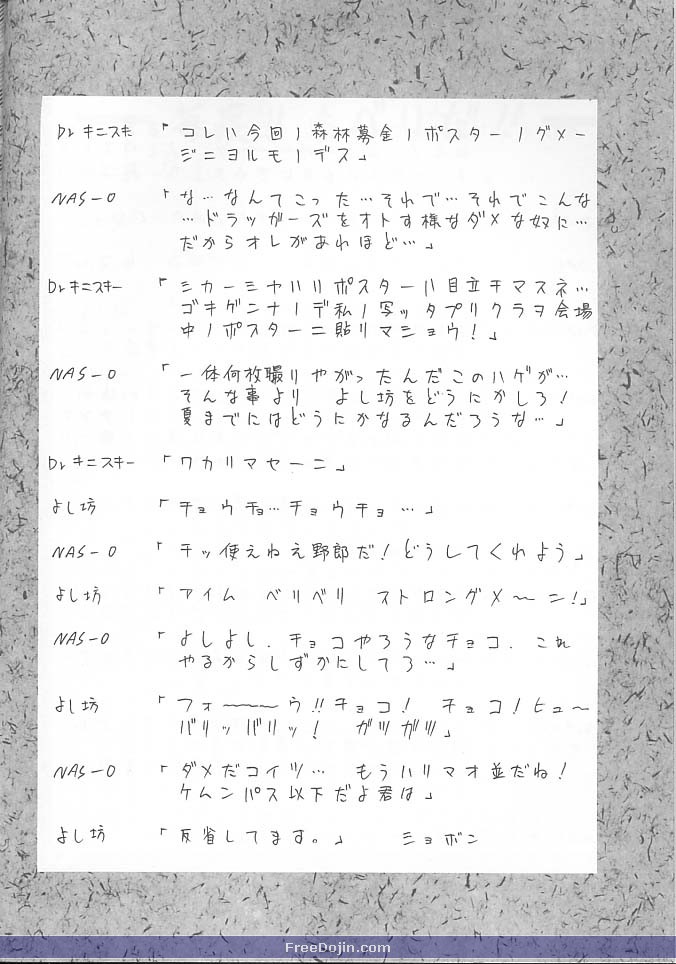 Dr.キニスキー 「コレハ今回ノ森林募金ノポスターノダメー
ジニヨルモノデス」
NAS-O 「な…なんてこった…それで…それでこんな
…ドラッガーズをオトす様なダメな奴に…
だからオレがあれほど…」
Dr.キニスキー 「ミカーミヤハリポスターハ目立チマスネ…
ゴキゲンナノデ私ノ写ッタプリクラヲ会場
中ノポスターニ貼リマショウ!」
NAS-O 「一体何枚撮りやがったんだこのハゲが…
そんな事より よし坊をどうにかしろ!
夏までにはどうにかなるんだろうな…」
Dr.キニスキー 「ワカリマセーニ」
よし坊 「チョウチョ…チョウチョ…」
NAS-O 「チッ使えねえ野郎だ!どうしてくれよう」
よし坊 「アイム ベリベリ ストロングメ〜ン!」
NAS-O 「よしよし.チョコやろうなチョコ.これ
やるからしずかにしてろ…」
よし坊 「フォ〜〜〜ウ!!チョコ! チョコ!ヒュ〜
バリッバリッ! ガツガツ」
NAS-O 「ダメだコイツ… もうハリマオ並だね!
ケムンパス以下だよ君は」
よし坊 「反省してます。」 ショボン
FreeDojin.com